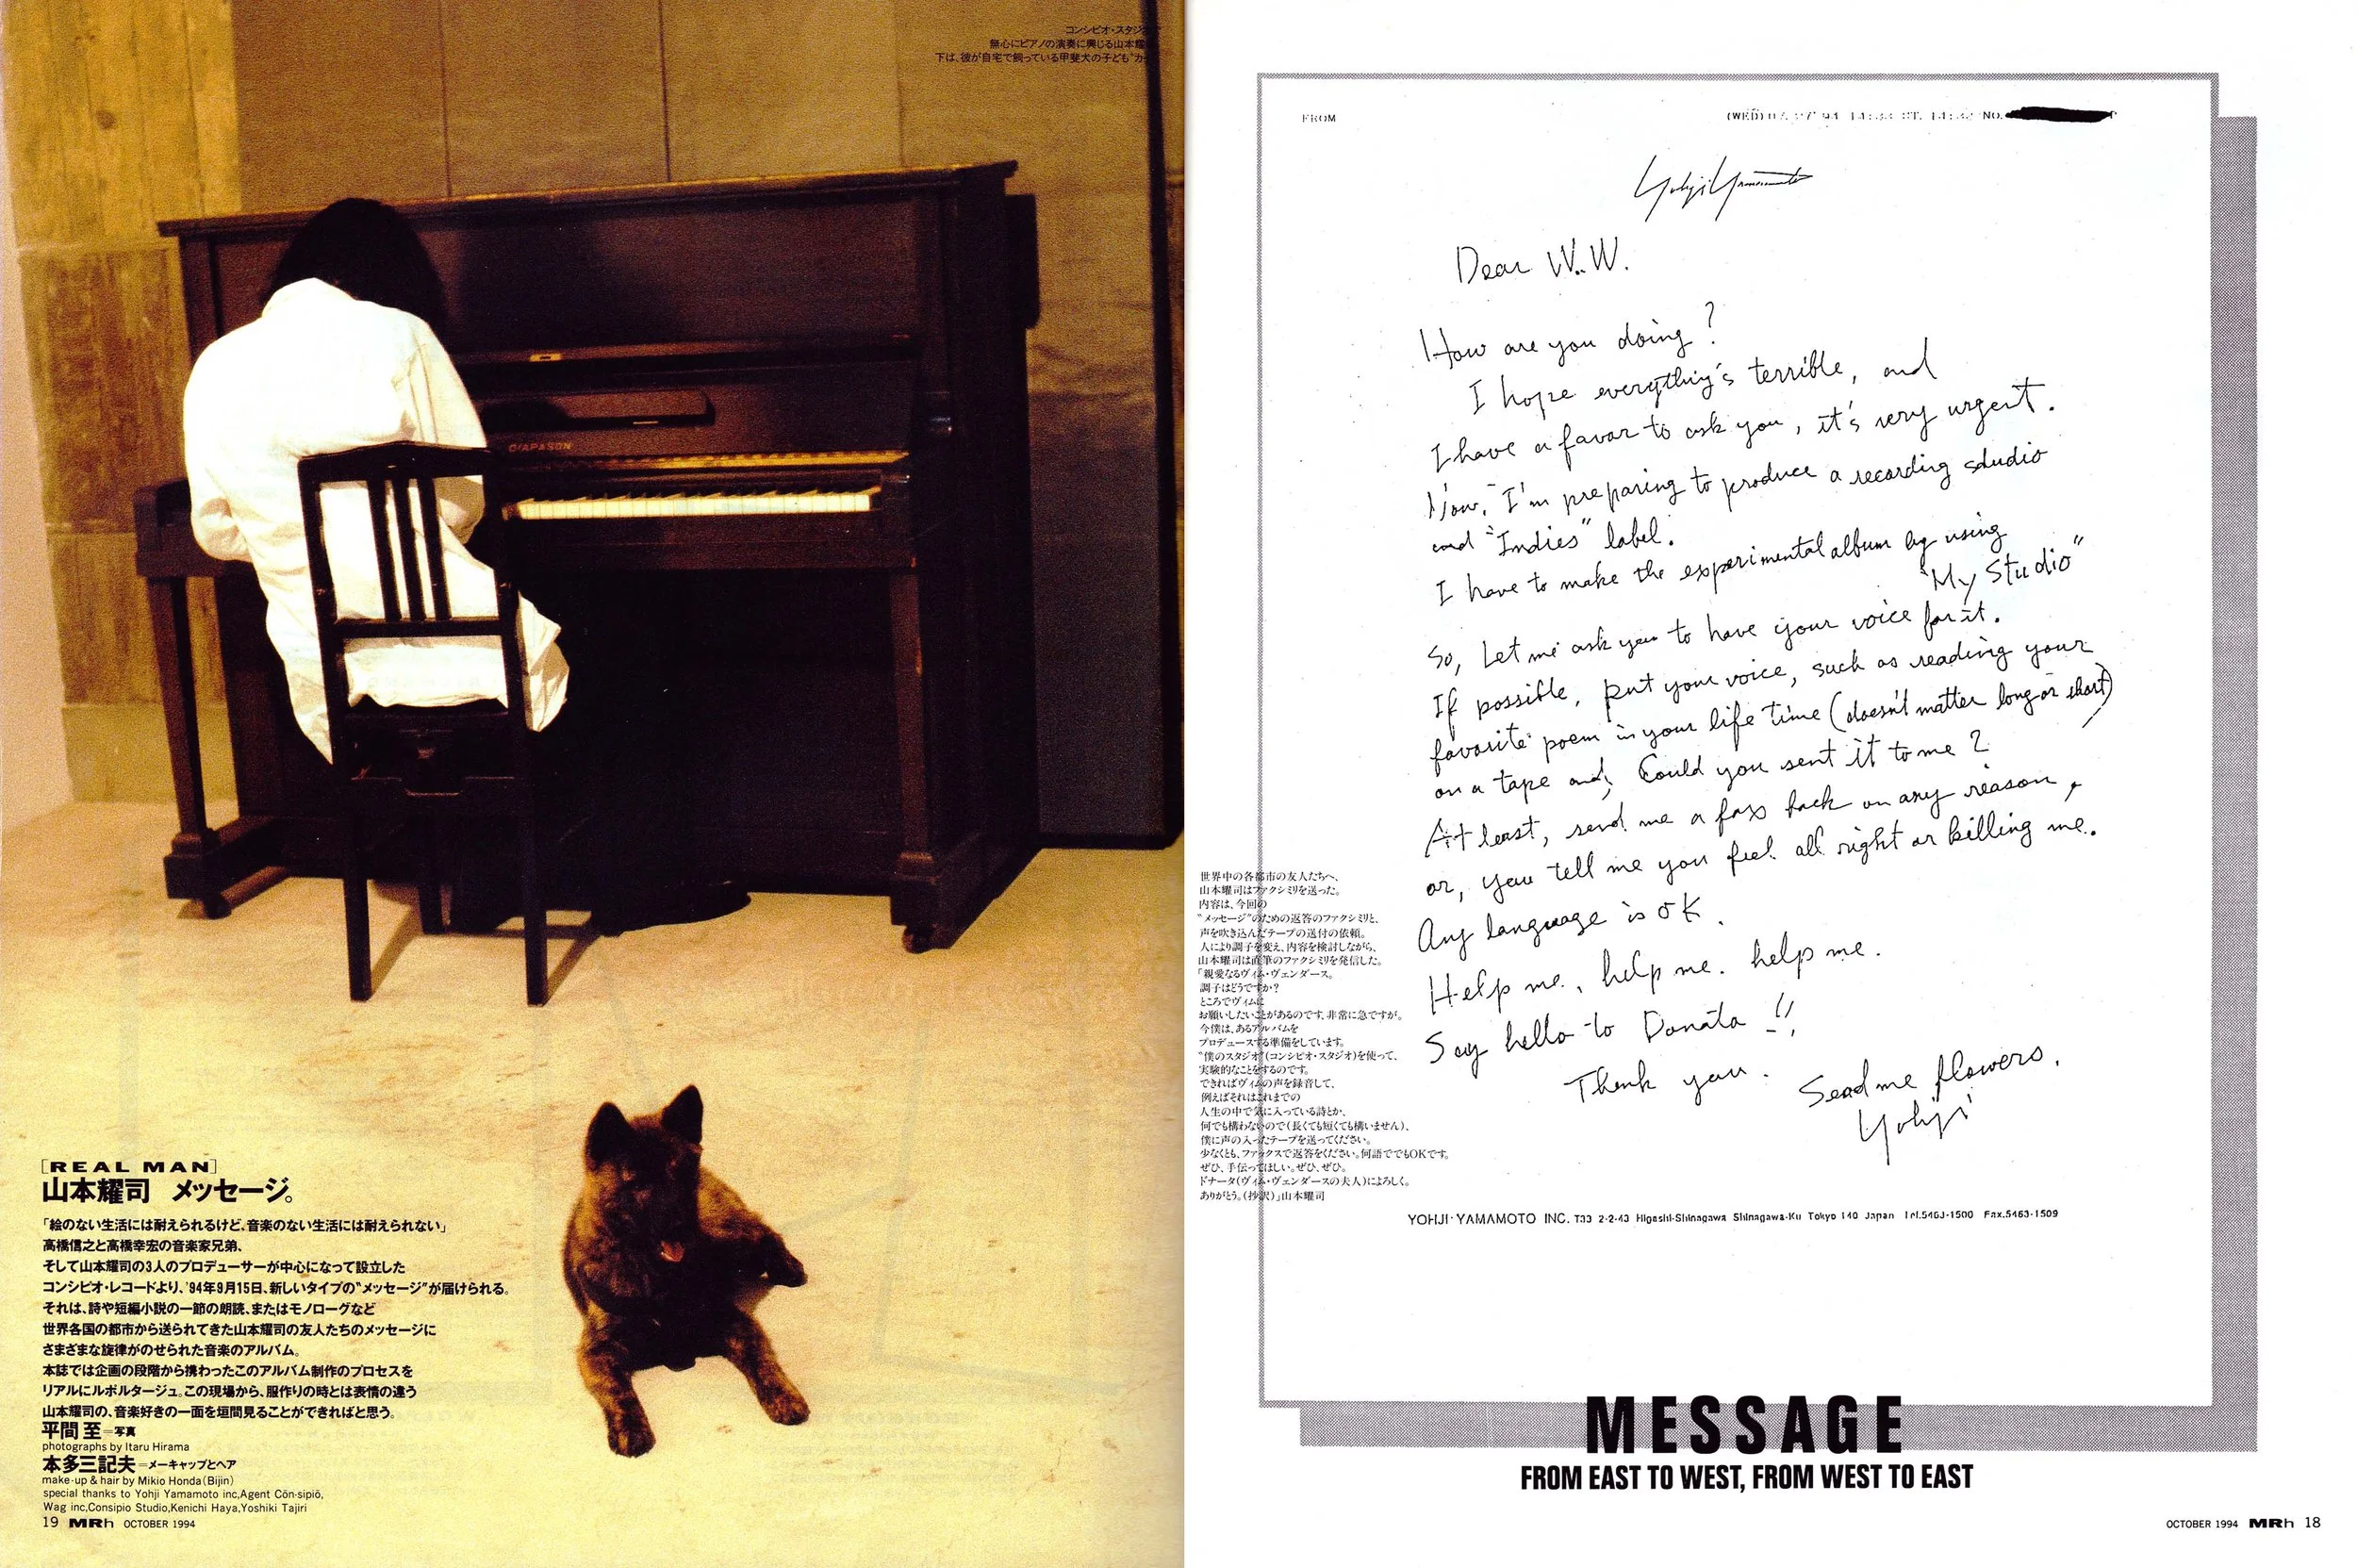 コンシピオ・スタジオ
無心にピアノの演奏に興じる山本耀
下は、彼が自宅で飼っている甲斐犬の子ども"カ
DIAPASON
[REAL MAN]
山本耀司　メッセージ。
「絵のない生活には耐えられるけど、音楽のない生活には耐えられない」
高橋信之と高橋幸宏の音楽家兄弟、
そして山本耀司の3人のプロデューサーが中心になって設立した
コンシピオ・レコードより、'94年9月15日、新しいタイプの"メッセージ"が届けられる。
それは、詩や短編小説の一節の朗読、またはモノローグなど
世界各国の都市から送られてきた山本耀司の友人たちのメッセージに
さまざまな旋律がのせられた音楽のアルバム。
本誌では企画の段階から携わったこのアルバム制作のプロセスを
リアルにルポルタージュ。この現場から、服作りの時とは表情の違う
山本耀司の、音楽好きの一面を垣間見ることができればと思う。
平間 至=写真
photographs by Itaru Hirama
本多三記夫=メーキャップとヘア
make-up & hair by Mikio Honda(Bijin)
special thanks to Yohji Yamamoto inc,Agent Cōn-sipiō,
Wag inc,Consipio Studio,Kenichi Haya,Yoshiki Tajiri
19 MRh OCTOBER 1994
FROM
(WED) NO.
Yohji Yamamoto
Dear W.W.
How are you doing?
I hope everything's terrible, and
I have a favor to ask you, it's very urgent.
Now, I'm preparing to produce a recording studio
and "Indies" label.
I have to make the experimental album by using
"My Studio"
So, Let me ask you to have your voice for it.
If possible, put your voice, such as reading your
favorite poem in your life time (doesn't matter long or short)
on a tape and, Could you sent it to me?
At least, send me a fax back on any reason,
or, you tell me you feel all right or killing me.
Any language is OK.
Help me, help me. help me.
Say hello to Donata !!
Thank you.
Send me flowers.
Yohji
世界中の各都市の友人たちへ、
山本耀司はファクシミリを送った。
内容は、今回の
"メッセージ"のための返答のファクシミリと、
声を吹き込んだテープの送付の依頼。
人により調子を変え、内容を検討しながら、
山本耀司は直筆のファクシミリを発信した。
「親愛なるヴィム・ヴェンダース。
調子はどうですか？
ところでヴィムに
お願いしたいことがあるのです、非常に急ですが。
今僕は、あるアルバムを
プロデュースする準備をしています。
"僕のスタジオ"(コンシピオ・スタジオ)を使って、
実験的なことをするのです。
できればヴィムの声を録音して、
例えばそれはこれまでの
人生の中で気に入っている詩とか、
何でも構わないので(長くても短くても構いません)、
僕に声の入ったテープを送ってください。
少なくとも、ファックスで返答をください。何語ででもOKです。
ぜひ、手伝ってほしい。ぜひ、ぜひ。
ドナータ(ヴィム・ヴェンダースの夫人)によろしく。
ありがとう。(抄訳)」山本耀司
YOHJI YAMAMOTO INC. T33 2-2-43 Higashi-Shinagawa Shinagawa-Ku Tokyo 140 Japan Tel.5463-1500 Fax.5463-1509
MESSAGE
FROM EAST TO WEST, FROM WEST TO EAST
OCTOBER 1994 MRh 18